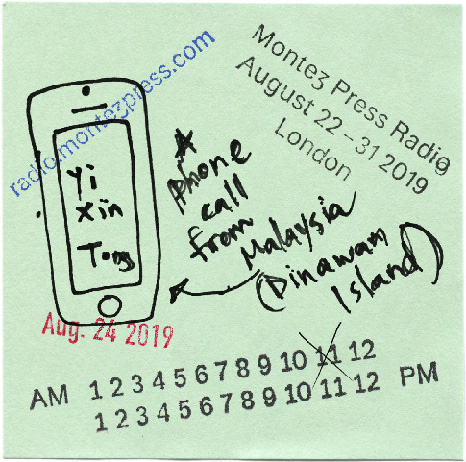 radio.montezpress.com
Montez Press Radio
August 22 – 31 2019
London
Yi
Xin
Tong
A
phone
call
from
Malaysia
(Dinawan
Island)
Aug. 24 2019
AM 1 2 3 4 5 6 7 8 9 10 11 12
1 2 3 4 5 6 7 8 9 10 11 12 PM